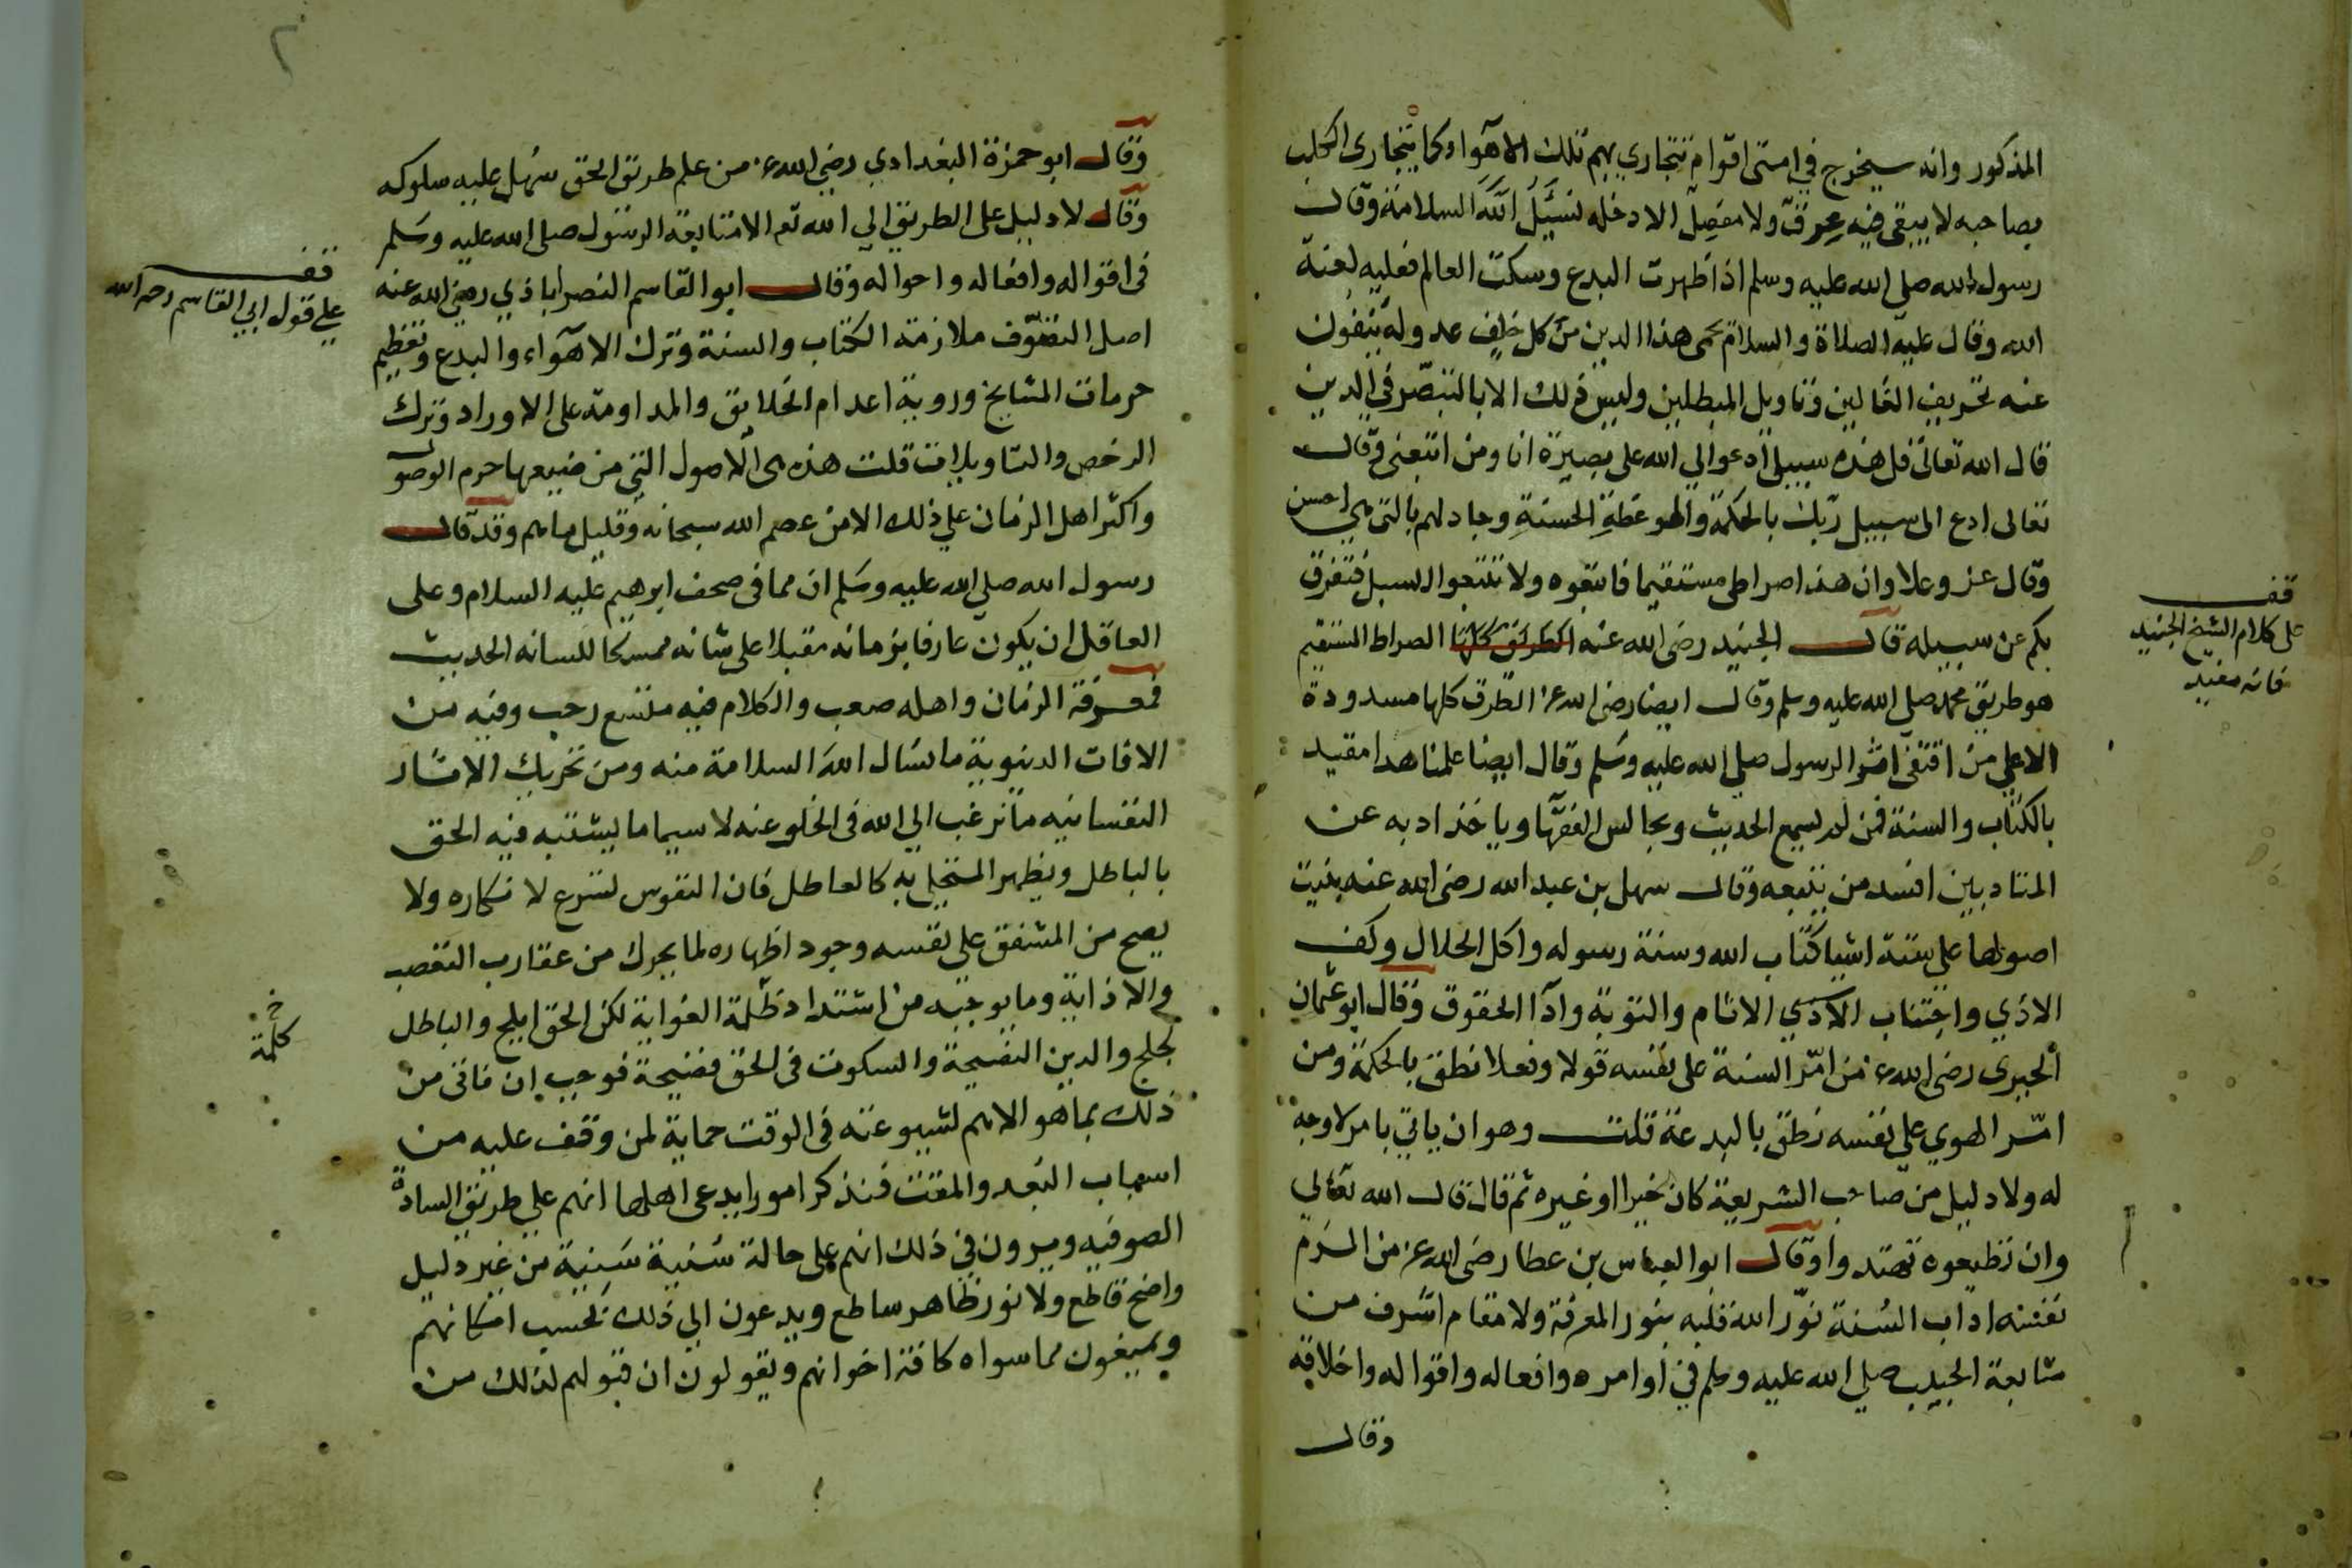 المذكور وانه سيخرج في امتى اقوام تتجارى بهم تلك الاهواء كما يتجارى الكلب
بصاحبه لا يبقى فيه عرق ولا مفصل الا دخله نسئل الله السلامة وقال
رسول الله صلى الله عليه وسلم اذا ظهرت البدع وسكت العالم فعليه لعنة
الله وقال عليه الصلاة والسلام يحمى هذا الدين من كل خلف عدوله ينفون
عنه تحريف الغالين وتاويل المبطلين وليس ذلك الا بالتبصر في الدين
قال الله تعالى قل هذه سبيلى ادعوا الي الله على بصيرة انا ومن اتبعنى وقال
تعالى ادع الى سبيل ربك بالحكمة والموعظة الحسنة وجادلهم بالتى هي احسن
وقال عز وعلا وان هذا صراطى مستقيما فاتبعوه ولا تتبعوا السبل فتفرق
بكم عن سبيله قال الجنيد رضى الله عنه الطرق كلها الصراط المستقيم
هو طريق محمد صلى الله عليه وسلم وقال ايضا رضى الله عنه الطرق كلها مسدودة
الا على من اقتفى اثر الرسول صلى الله عليه وسلم وقال ايضا علمنا هذا مقيد
بالكتاب والسنة فمن لم يسمع الحديث ويجالس الفقها وياخذ ادبه عن
المتادبين افسد من يتبعه وقال سهل بن عبد الله رضى الله عنه بنيت
اصولها على ستة اشيا كتاب الله وسنة رسوله واكل الحلال وكف
الاذي واجتناب الاذي الاثام والتوبة وادآ الحقوق وقال ابو عثمان
الحيرى رضى الله عنه من امّر السنة على نفسه قولا وفعلا نطق بالحكمة ومن
امّر الهوي علي نفسه نطق بالبدعة قلت وهو ان ياتي بامر لا وجه
له ولا دليل من صاحب الشريعة كان خيرا او غيره ثم قال قال الله تعالي
وان تطيعوه تهتدوا وقال ابو العباس بن عطا رضى الله عنه من الزم
نفسه اداب السنة نوّر الله قلبه بنور المعرفة ولا مقام اشرف من
متابعة الحبيب صلي الله عليه وسلم في اوامره وافعاله واقواله واخلاقه
وقال
قف
على كلام الشيخ الجنيد
فانه مفيد
وقال ابو حمزة البغدادي رضي الله عنه من علم طريق الحق سهل عليه سلوكه
وقال لا دليل على الطريق الي الله تع الا متابعة الرسول صلى الله عليه وسلم
فى اقواله وافعاله واحواله وقال ابو القاسم النصراباذي رضي الله عنه
اصل التصوّف ملازمة الكتاب والسنة وترك الاهوآء والبدع وتعظيم
حرمات المشايخ وروية اعدام الخلايق والمداومة على الاوراد وترك
الرخص والتاويلات قلت هذه هى الاصول التي من ضيعها حرم الوصول
واكثر اهل الزمان علي ذلك الا من عصم الله سبحانه وقليل ما هم وقد قال
رسول الله صلي الله عليه وسلم ان مما فى صحف ابرهيم عليه السلام وعلى
العاقل ان يكون عارفا بزمانه مقبلا على شانه ممسكا للسانه الحديث
فمعرفة الزمان واهله صعب والكلام فيه متسع رحب وفيه من
الافات الدينوية ما نسال الله السلامة منه ومن تحريك الاثار
النفسانيه ما نرغب الي الله فى الخلو عنه لا سيما ما يشتبه فيه الحق
بالباطل ويظهر المتحلي به كالعاطل فان النفوس تسرع لانكاره ولا
يصح من المشفق على نفسه وجود اظهاره لما يحرك من عقارب التعصب
والاذاية وما يوجبه من اشتداد ظلمة الغواية لكن الحق ابلج والباطل
لجلج والدين النصيحة والسكوت فى الحق فضيحة فوجب ان ناتى من
ذلك بما هو الاهم لشيوعته فى الوقت حماية لمن وقف عليه من
اسباب البعد والمقت فنذكر امورا يدعى اهلها انهم علي طريق السادة
الصوفيه ويرون في ذلك انهم على حالة سُنية سَنِية من غير دليل
واضح قاطع ولا نور ظاهر ساطع ويدعون الي ذلك بحسب امكانهم
ويمنعون مما سواه كافة اخوانهم ويقولون ان قبولهم لذلك من
قف
علي قول ابي القاسم رحمه الله
خ
كلمة